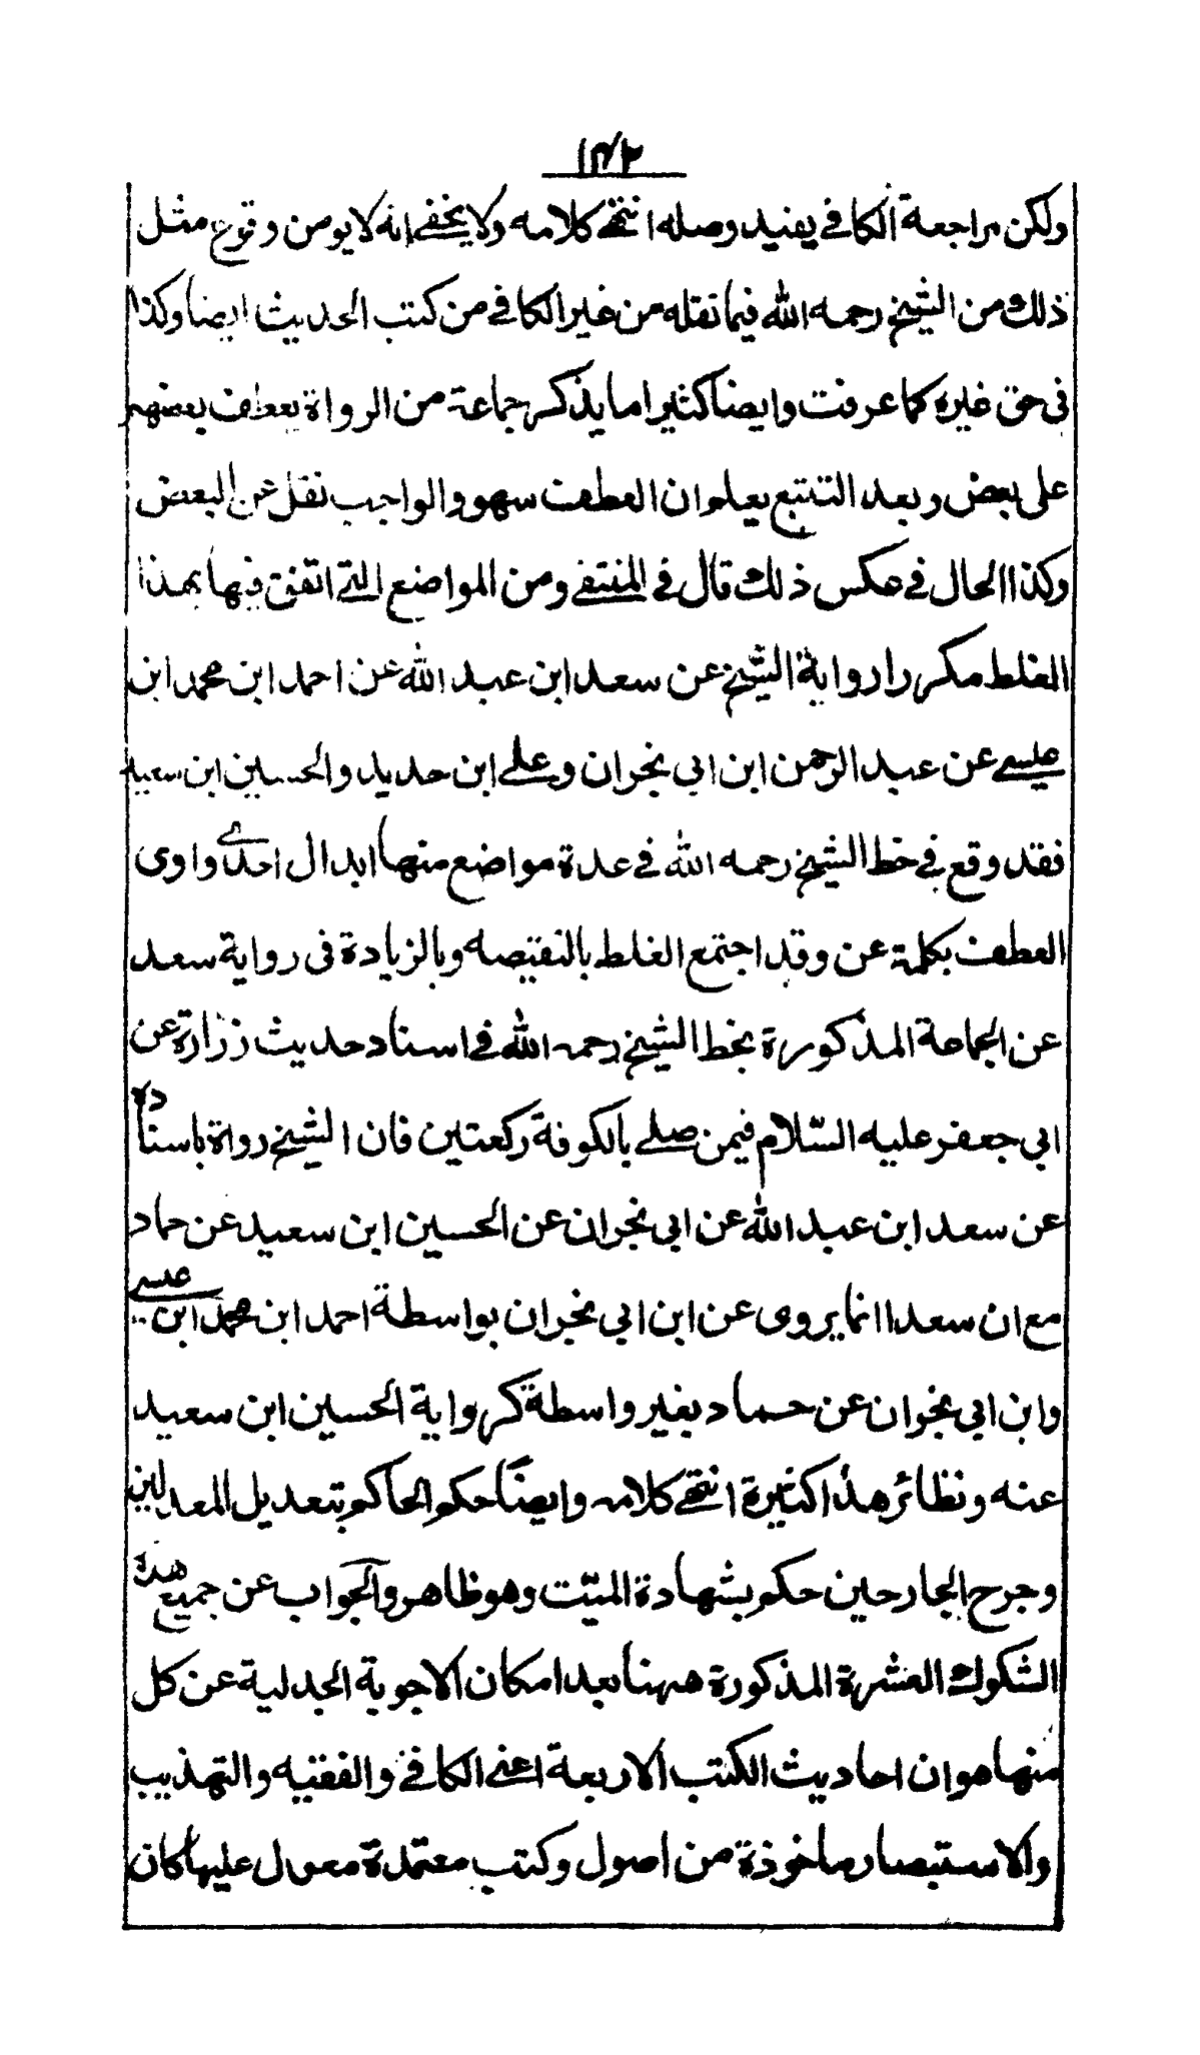 ١٤٢
ولكن مراجعة الكافي يفيد وصله انتهى كلامه ولا يخفى انه لا يومن وقوع مثل
ذلك من الشيخ رحمه الله فيما نقله من غير الكافي من كتب الحديث ايضا وكذا
في حق غيره كما عرفت وايضا كثيرا ما يذكر جماعة من الرواة يعطف بعضهم
على بعض وبعد التتبع يعلم ان العطف سهو والواجب نقل عن البعض
وكذا الحال في عكس ذلك قال في المنتقى ومن المواضع التي اتفق فيها هذا
الغلط مكررا رواية الشيخ عن سعد ابن عبد الله عن احمد ابن محمد ابن
عيسى عن عبد الرحمن ابن ابي نجران وعلي ابن حديد والحسين ابن سعيد
فقد وقع في خط الشيخ رحمه الله في عدة مواضع منها ابدال احدى واوى
العطف بكلمة عن وقد اجتمع الغلط بالنقيصه وبالزيادة فى رواية سعد
عن الجماعة المذكورة بخط الشيخ رحمه الله في اسناد حديث زرارة عن
ابي جعفر عليه السّلام فيمن صلى بالكوفة ركعتين فان الشيخ رواة باسناده
عن سعد ابن عبد الله عن ابي نجران عن الحسين ابن سعيد عن حماد
مع ان سعدا انما يروى عن ابن ابي نجران بواسطة احمد ابن محمد ابن عيسى
وابن ابي نجران عن حماد بغير واسطة كرواية الحسين ابن سعيد
عنه ونظائر هذا كثيرة انتهى كلامه وايضًا حكم الحاكم بتعديل المعدلين
وجرح الجارحين حكم بشهادة الميّت وهو ظاهر والجواب عن جميع هذه
الشكوك العشرة المذكورة ههنا بعد امكان الاجوبة الجدلية عن كل
منها هو ان احاديث الكتب الاربعة اعنى الكافي والفقيه والتهذيب
والاستبصار ماخوذة من اصول وكتب معتمدة معول عليها كان